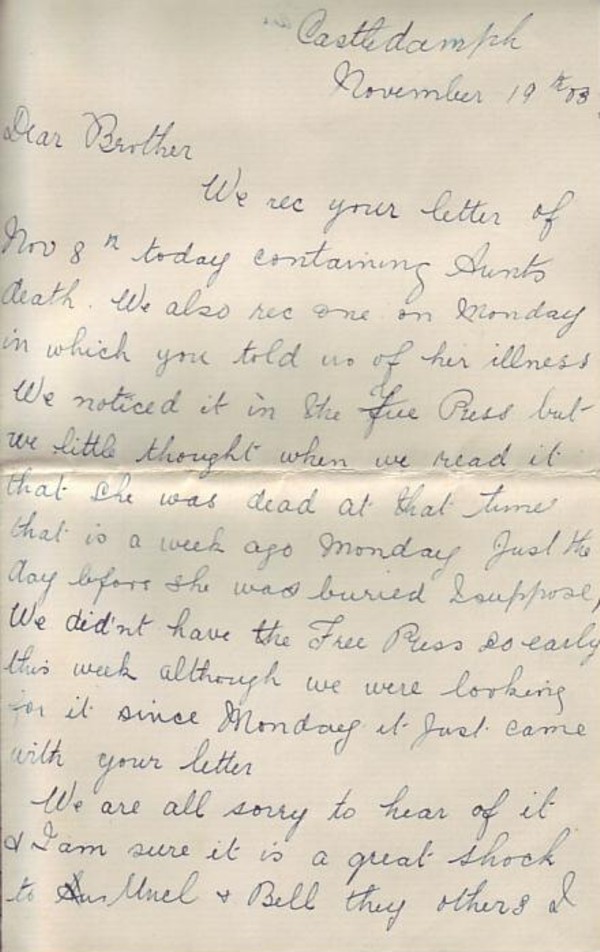 Castledamph
November 19th 03
Dear Brother
We rec your letter of
Nov 8th today containing Aunts
death. We also rec one on Monday
in which you told us of her illness
We noticed it in the Free Press but
we little thought when we read it
that she was dead at that time
that is a week ago Monday Just the
day before she was buried I suppose,
We did'nt have the Free Press so early
this week although we were looking
for it since Monday it Just came
with your letter
We are all sorry to hear of it
& I am sure it is a great shock
to Uncl & Bell they others I